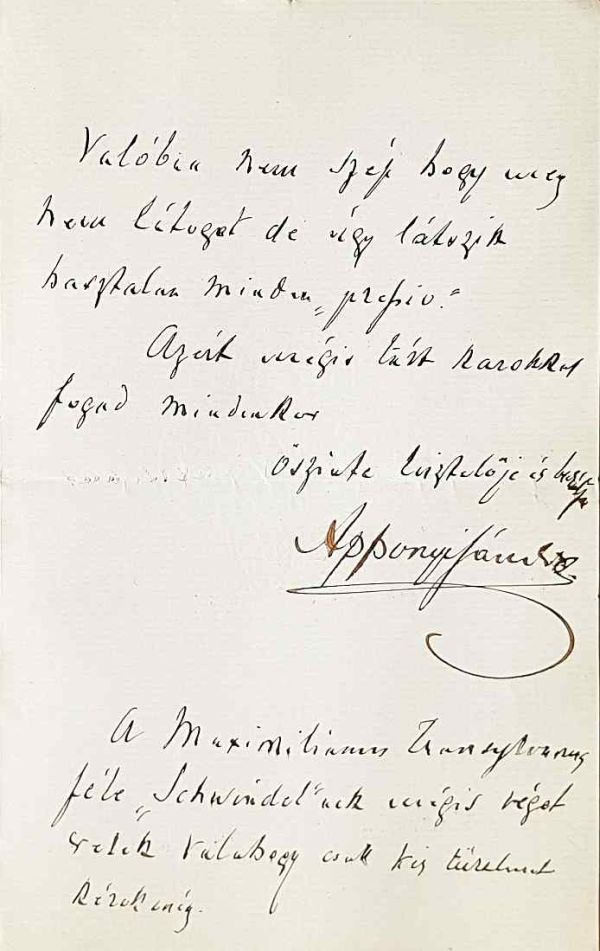 Valóbia nem szép hogy meg
nem látogat de úgy látszik
hasztalan minden „pressio."
Azért mégis tárt karokkal
fogad mindenkor
őszinte tisztelője és
Apponyi Sándor
A Maximilianus Transylvanus
féle „Schwindel"nek mégis véget
vetek valahogy csak kis türelmet
kérek még.